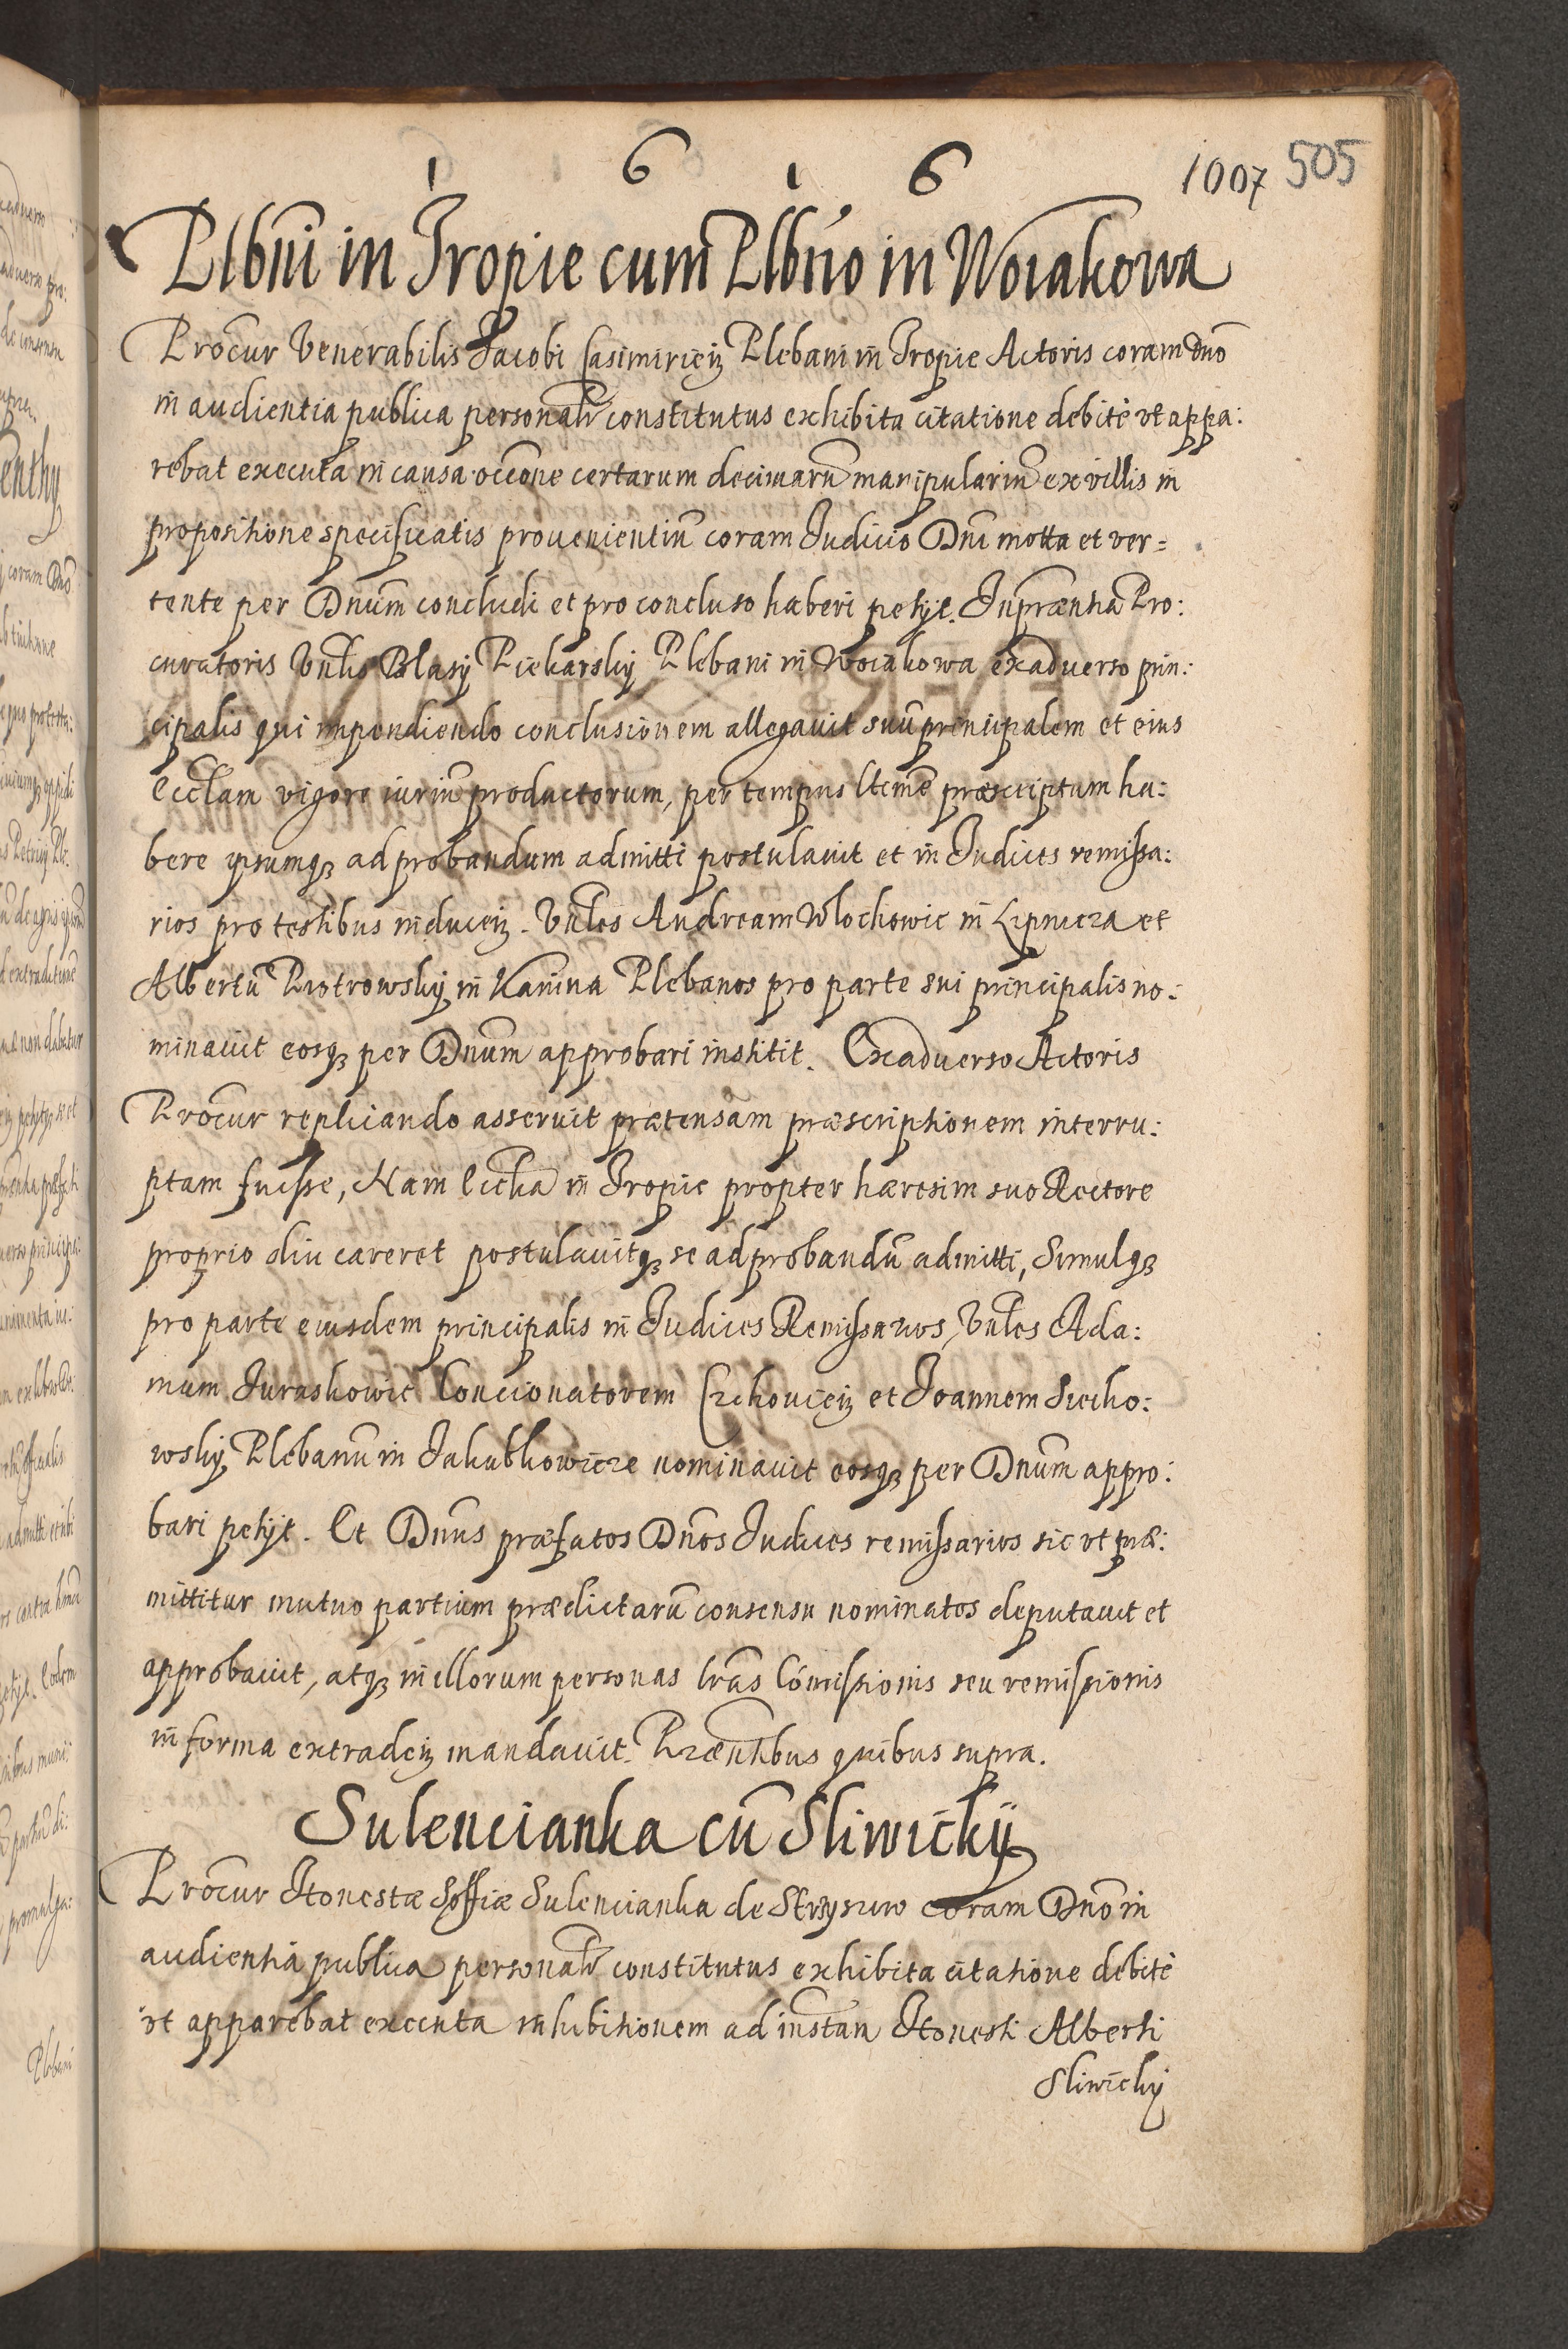 1 6 1 6
1007 505
Plbni in Tropie cum Plbno in Woiakowa
Procur Venerabilis Jacobi Casimirien Plebani in Tropie Actoris coram Dno
in audientia publica personalr constitutus exhibita citatione debitè vt appa:
rebat executa in causa occone certarum decimarū manipulariū ex villis in
propositione specificatis prouenientiū coram Judicio Dni motta et ver=
tente per Dnum concludi et pro concluso haberi petijt. In prntia Pro:
curatoris Vnlis Blasij Piekarskij Plebani in Woiakowa ex aduerso prin:
cipalis qui impendiendo conclusionem allegauit suū principalem et eius
Ecclam vigore iuriū productorum, per tempus ltimē præscriptam ha:
bere ipsumq3 ad probandum admitti postulauit et in Judices remissa:
rios pro testibus inducen. Vnles Andream Wlochowic in Lipnicza et
Albertū Piotrowskij in Kanina Plebanos pro parte sui principalis no:
minauit eosq3 per Dnum approbari institit. Ex aduerso Actoris
Procur replicando asseruit prætensam præscriptionem interru:
ptam fuisse, Nam Ecclia in Tropie propter hæresim suo Rectore
proprio diu careret postulauitq3 se ad probandū admitti, Simulq3
pro parte eiusdem principalis in Judices Remissarios, Vnles Ada:
mum Juraskowic Concionatorem Czchouien et Joannem Siecho:
wskij Plebanū in Jakubkowicze nominauit eosq3 per Dnum appro:
bari petijt. Et Dnus præfatos Dnos Judices remissarios sic vt præ:
mittitur mutuo partium prædictarū consensu nominatos deputauit et
approbauit, atq3 in illorum personas lras Comissionis seu remissionis
in forma extraden mandauit. Præntibus quibus supra.
Sulencianka cū Sliwickij
Procur Honestæ Soffiæ Sulencianka de coram Dno in
audientia publica personalr constitutus exhibita citatione debitè
vt apparebat executa inhibitionem ad instan Honesti Alberti
Sliwickij